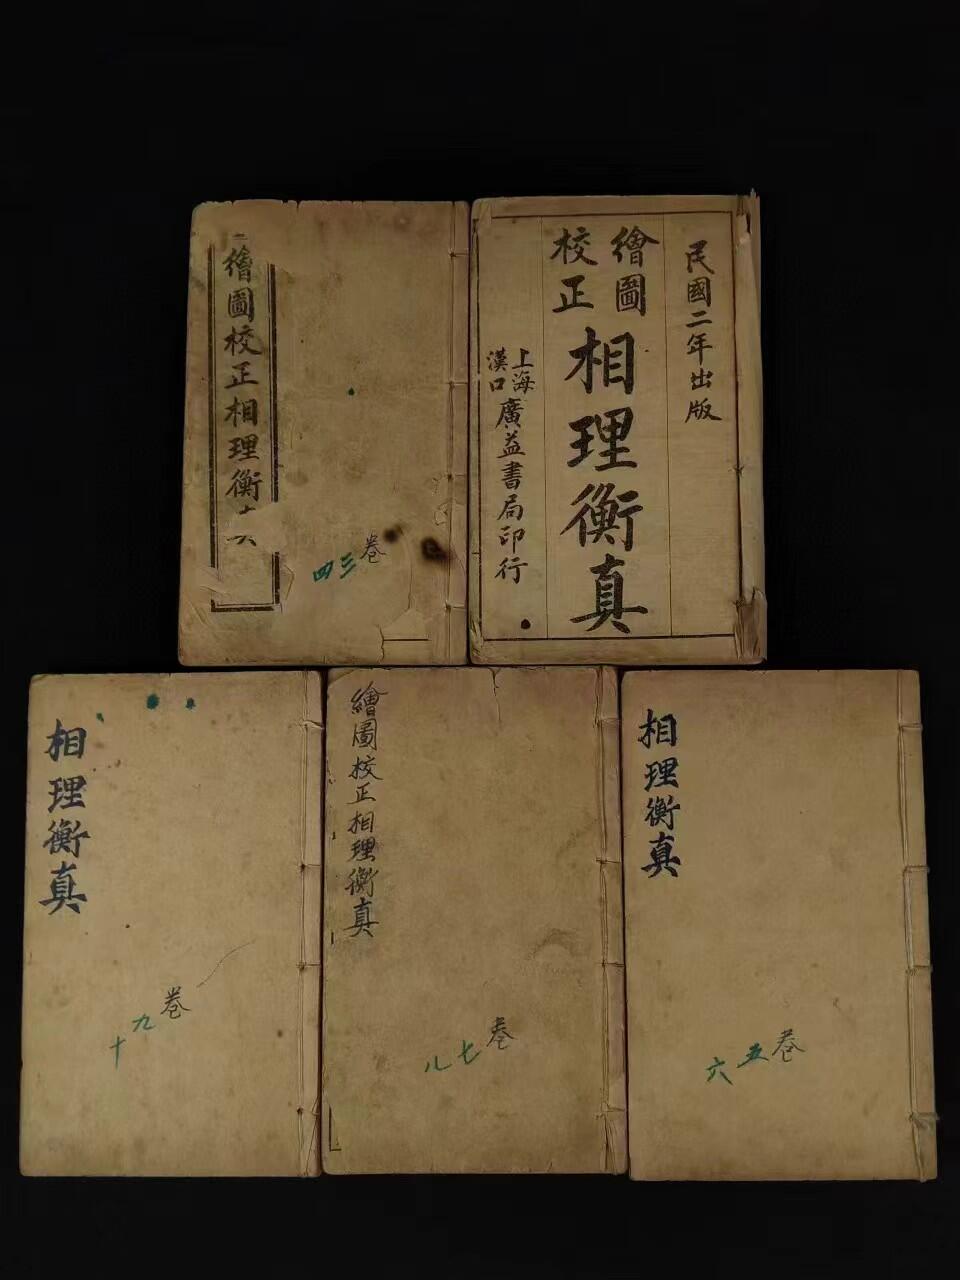 民國二年出版
繪圖
校正
相理衡真
上海
漢口
廣益書局印行
繪圖校正相理衡真
卷三四
相理衡真
卷五六
繪圖校正相理衡真
卷七八
相理衡真
卷九十